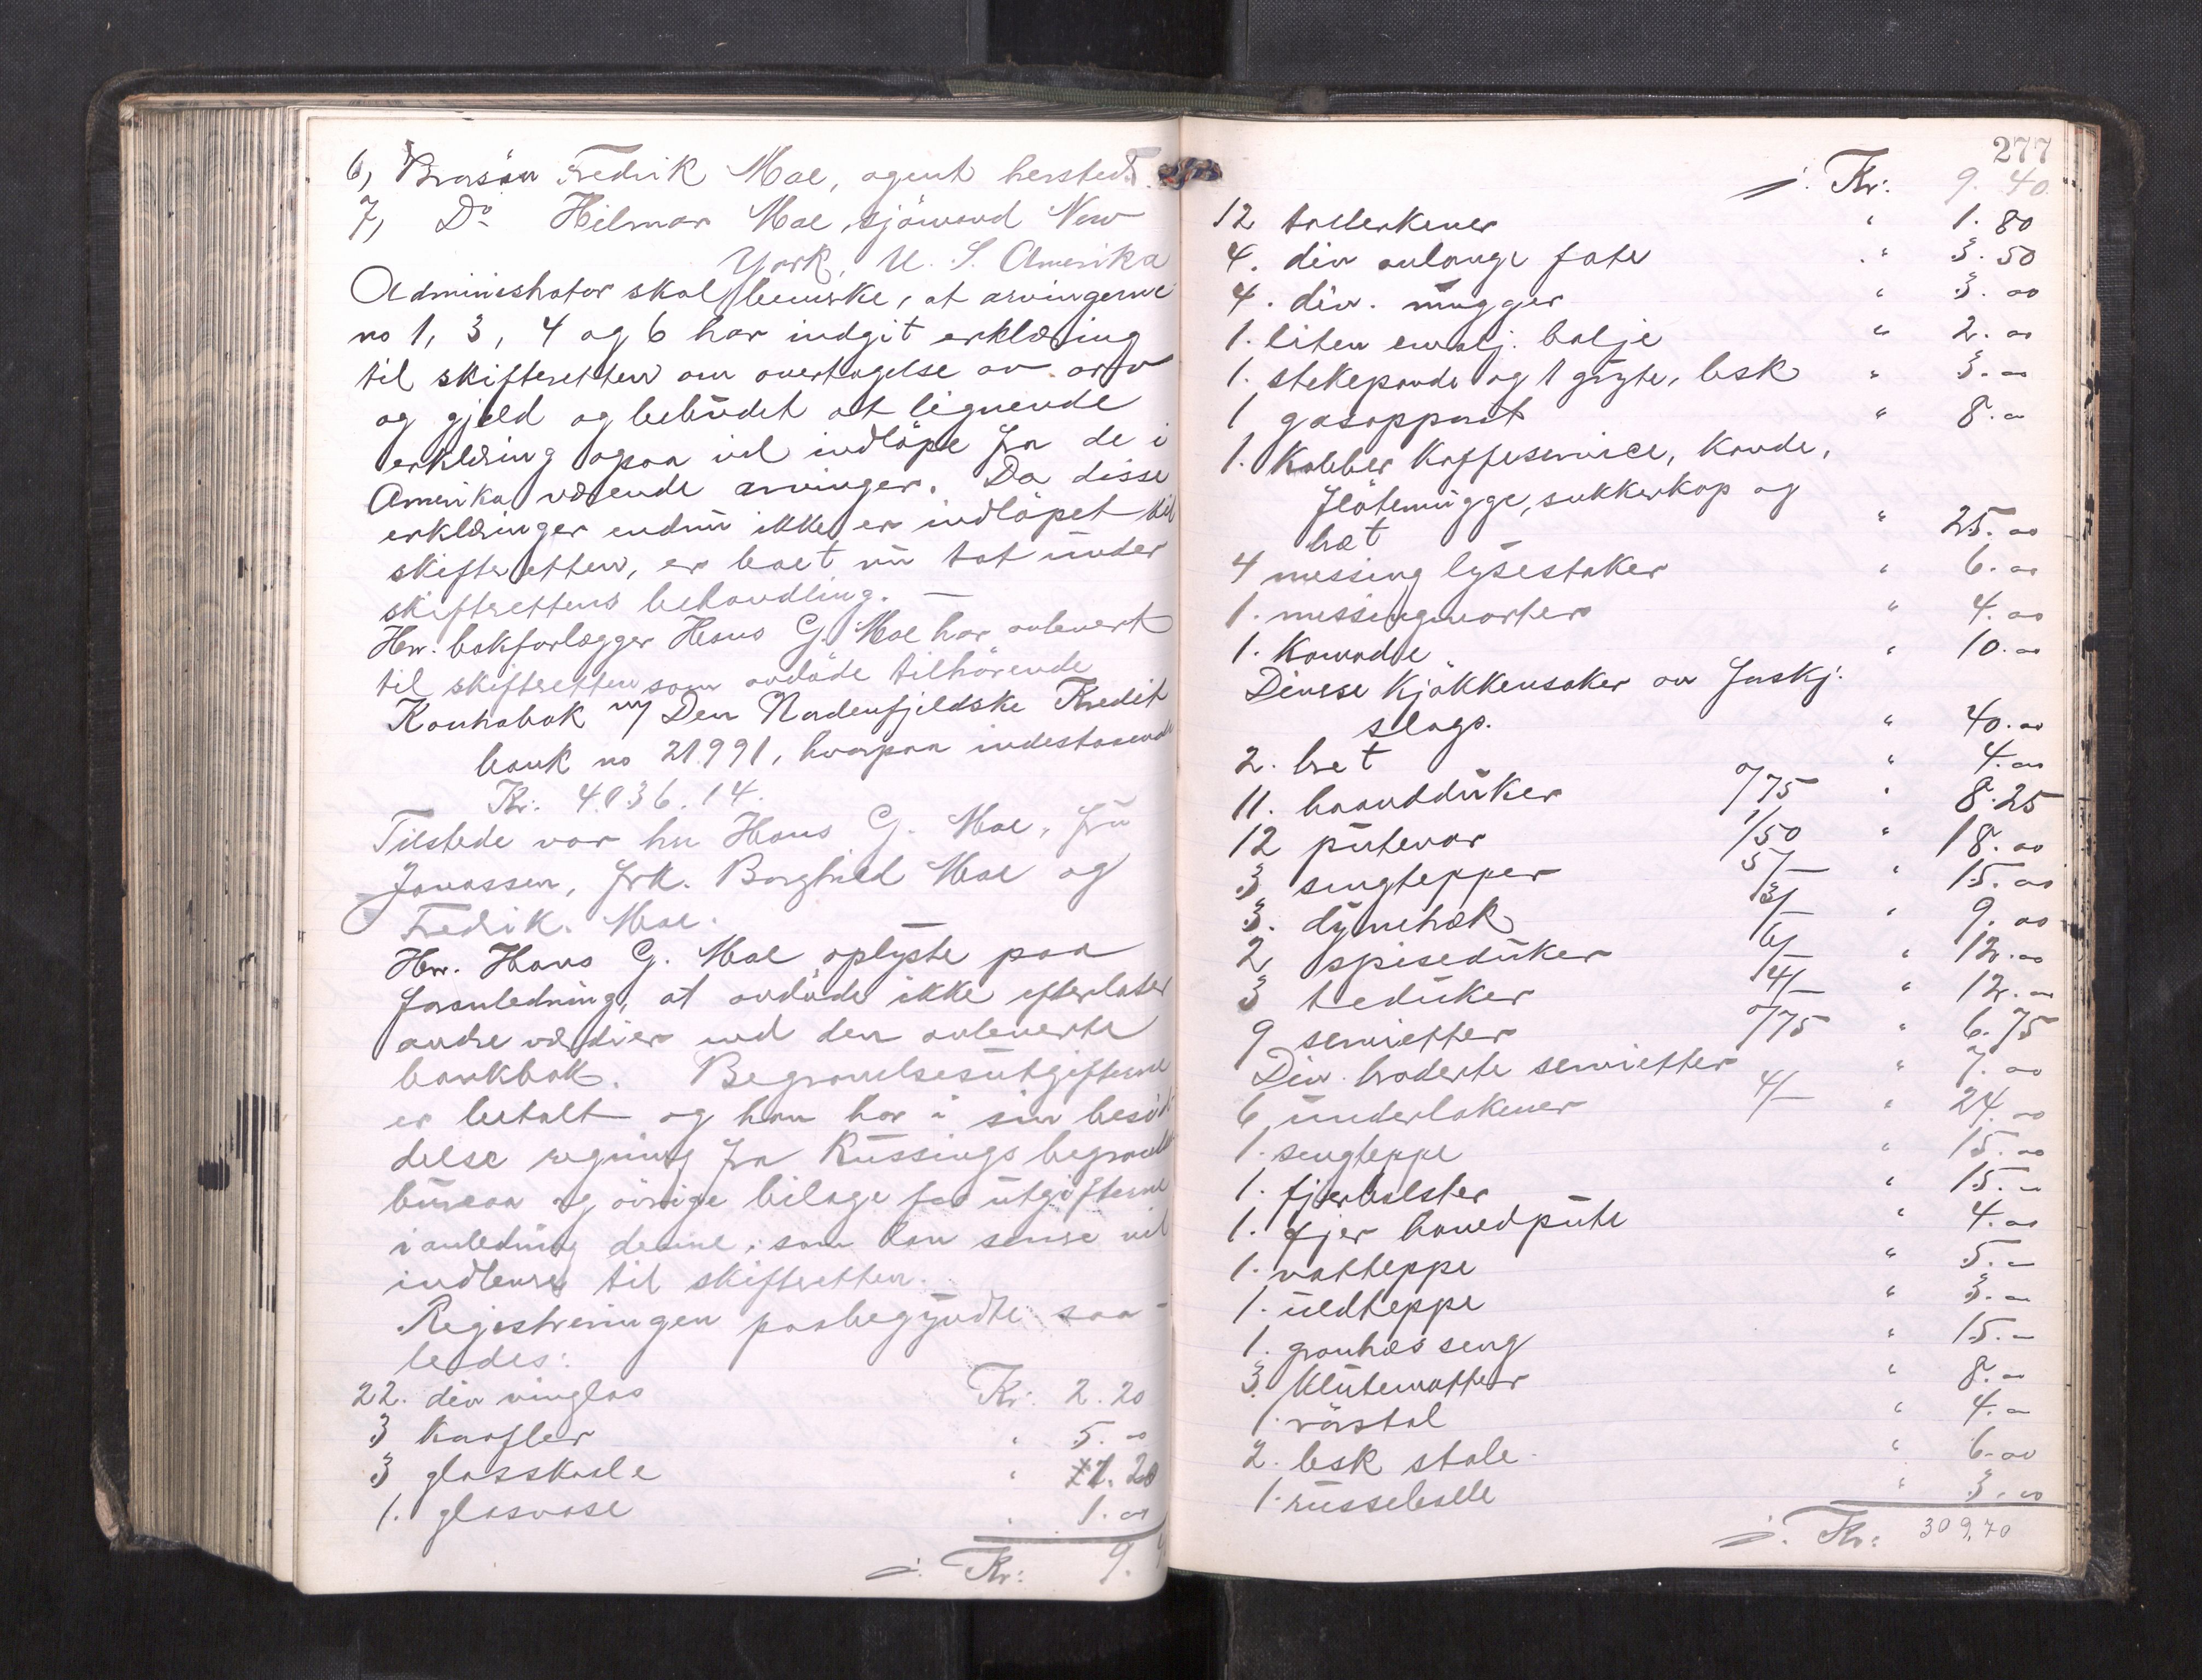 6, Brorsön Fredrik Moe, agent hersteds.
7, Do Hilmar Moe, sjömand New
York, U. S. Amerika
Administrator skal bemerke, at arvingerne
no 1, 3, 4 og 6 har indgit erklæring
til skifteretten om overtagelse av arv
og gjæld og bebudet at lignende
erklæring ogsaa vil indlöpe fra de i
Amerika værende arvinger. Da disse
erklæringer endnu ikke er indlöpet til
skifteretten, er boet nu tat under
skifterettens behandling. —
Hr. bokforlægger Hans G. Moe har avlevert
til skifteretten som avdöde tilhörende
Kontrabok m/ Den Nordenfjeldske Kredit
bank no 21991, hvorpaa indestaaende
Kr. 4036.14.
Tilstede var hr Hans G. Moe, fru
Jonassen, frk. Borghild Moe og
Fredrik Moe.
Hr. Hans G. Moe oplyste paa
foranledning, at avdöde ikke efterlater
andre værdier end den avleverte
bankbok. Begravelsesutgifterne
er betalt og han har i sin besid-
delse regning fra Russings begravelses
bureau og övrige bilage for utgifterne
i anledning denne, som han senere vil
indlevere til skifteretten.
Registreringen paabegyndte saa-
ledes:
22. div vinglas Kr: 2.20
3 karafler " 5.00
3 glasskaale " 1.20
1. glasvase " 1.00
j. Kr: 9.
277
j. Kr: 9.40
12 tallerkener " 1.80
4. div avlange fate " 3.50
4. div. mugger " 3.00
1. liten emalj. balje " 2.00
1. stekepande og 1 gryte, besk " 3.00
1 gasapparat " 8.00
1. Kobber kaffeservice, kande,
flötemugge, sukkerkop og
bræt " 25.00
4 messing lysestaker " 6.00
1. messingmorter " 4.00
1. Komode " 10.00
Diverse kjökkensaker av forskj.
slags. " 40.00
2. bret " 4.00
11. haandduker 0/75 " 8.25
12 putevar 1/50 " 18.00
3 sengtepper 5/— " 15.00
3. dynetræk 3/— " 9.00
2 spiseduker 6/— " 12.00
3 teduker 4/— " 12.00
9 servietter 0/75 " 6.75
Div. broderte servietter " 7.00
6 underlakener 4/— " 24.00
1. sengteppe " 15.00
1. fjærbolster " 15.00
1. fjær hovedpute " 4.00
1. vatteppe " 5.00
1. uldteppe " 3.00
1. granträs seng " 15.00
3 klutematter " 8.00
1. rörstol " 4.00
2. besk stole " 6.00
1. russebalje " 3.00
j. Kr: 309,70